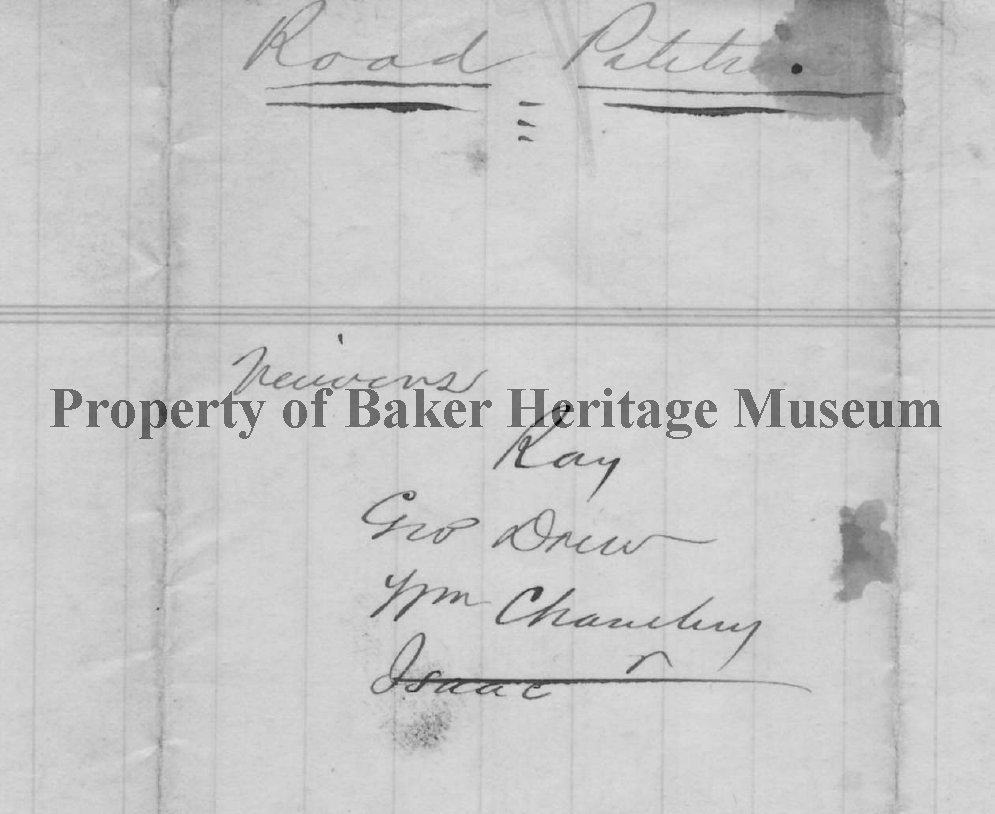 Road Petition.
Viewers
Property of Baker Heritage Museum
Ray
Geo Drew
Wm Chambers
Isaac